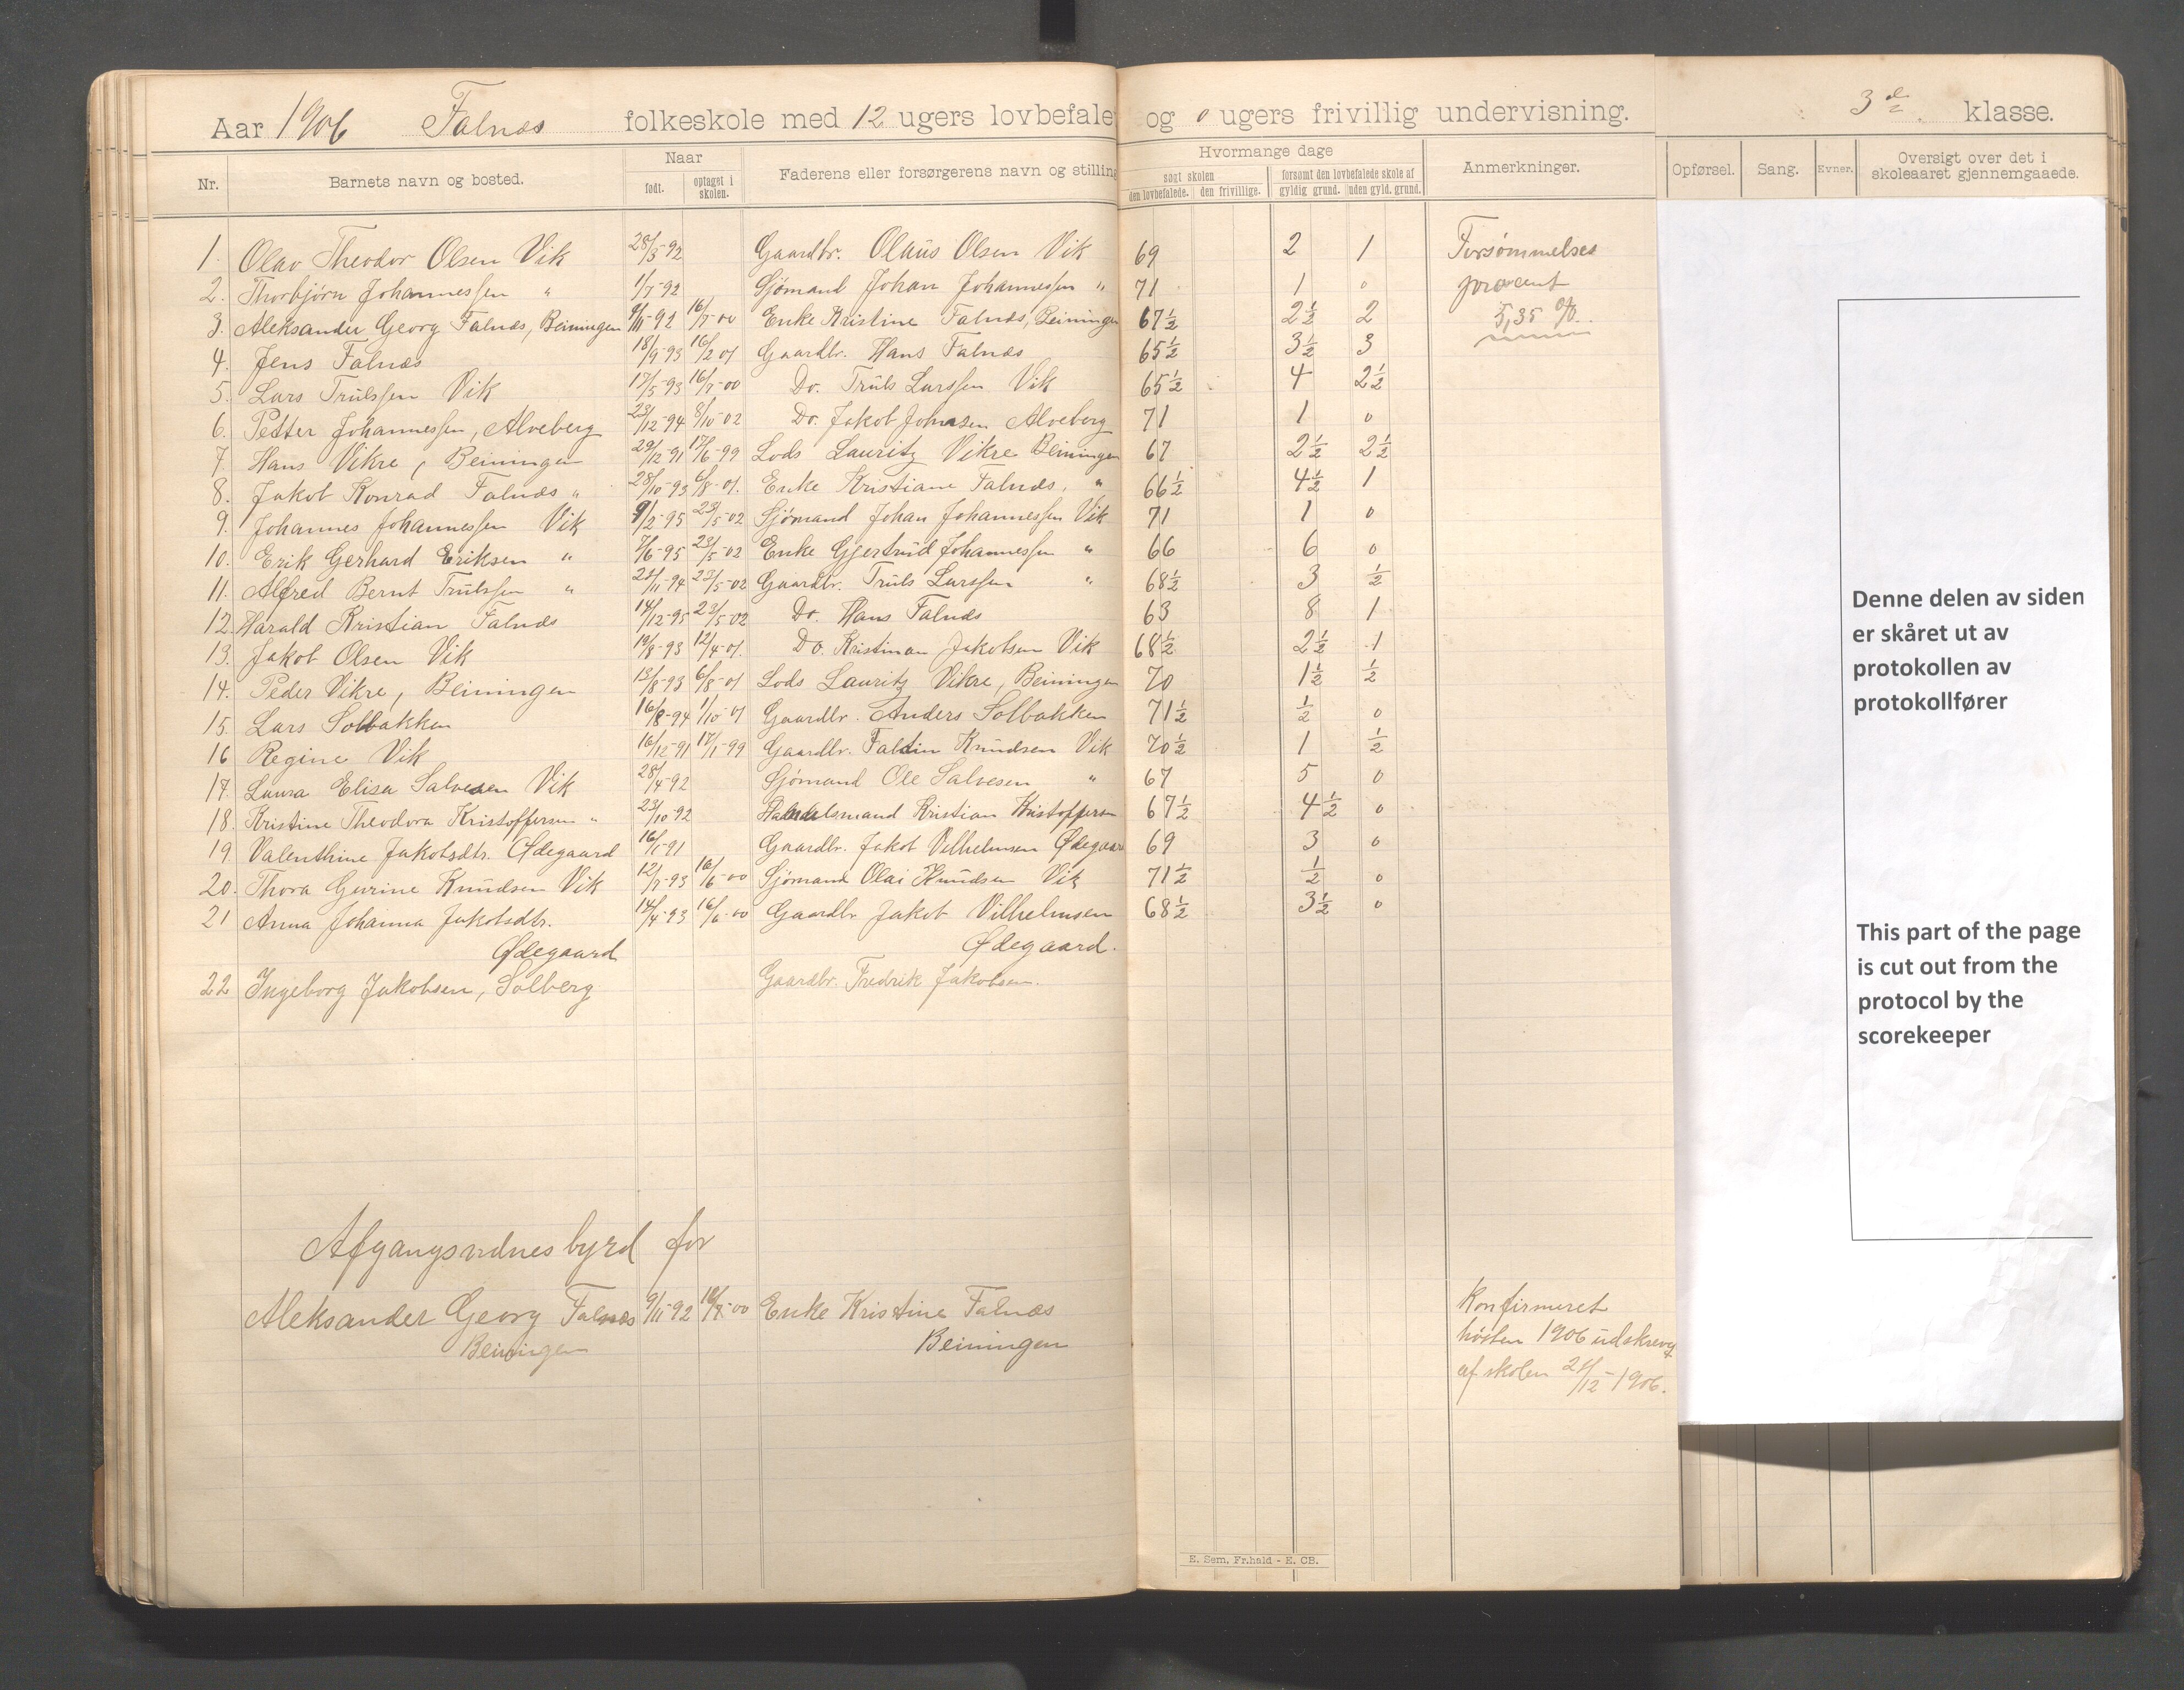 Aar 1906 Falnæs folkeskole med 12 ugers lovbefale og 0 ugers frivillig undervisning. 3de klasse.
Nr. Barnets navn og bosted. Naar født. optaget i skolen. Faderens eller forsørgerens navn og stilling Hvormange dage søgt skolen den lovbefalede. den frivillige. forsømt den lovbefalede skole af gyldig grund. uden gyld. grund. Anmerkninger. Opførsel. Sang. Evner. Oversigt over det i skoleaaret gjennemgaaede.
1. Olav Theodor Olsen Vik 28/3-92 Gaardbr. Olaus Olsen Vik 69 2 1 Forsømmelses
2. Thorbjørn Johannessen " 1/7-92 Sjømand Johan Johannessen " 71 1 0 procent
3. Aleksander Georg Falnæs, Beiningen 9/11-92 16/7-00 Enke Kristine Falnæs, Beiningen 67½ 2½ 2 5,35 %
4. Jens Falnæs 18/9-93 16/2 01 Gaardbr. Hans Falnæs 65½ 3½ 3
5. Lars Trulssen Vik 17/5-93 16/7-00 Do. Truls Larssen Vik 65½ 4 2½
6. Petter Johannessen, Alveberg 23/12-94 8/10-02 Do. Jakob Johnsen Alveberg 71 1 0
7. Hans Vikre, Beiningen 29/12-91 17/6-99 Lods Lauritz Vikre Beiningen 67 2½ 2½
8. Jakob Konrad Falnæs " 28/10-93 6/8-01. Enke Kristiane Falnæs, " 66½ 4½ 1
9. Johannes Johannessen Vik 9/2-95 23/5-02 Sjømand Johan Johannessen Vik 71 1 0
10. Erik Gerhard Eriksen " 7/6-95 23/5-02 Enke Gjertrud Johannessen " 66 6 0
11. Alfred Bernt Trulssen " 21/11-94 23/5-02 Gaardbr. Truls Larssen " 68½ 3 ½
12. Harald Kristian Falnæs 14/12-95 23/5-02 Do. Hans Falnæs 63 8 1
13. Jakob Olsen Vik 19/8-93 12/4-01. Do. Kristian Jakobsen Vik 68½ 2½ 1
14. Peder Vikre, Beiningen 13/8-93 6/8-01 Lods Lauritz Vikre, Beiningen 70 1½ ½
15. Lars Solbakken 16/8-94 1/10-01 Gaardbr. Anders Solbakken 71½ ½ 0
16 Regine Vik 16/12-91 17/1-99 Gaardbr. Faltin Knudsen Vik 70½ 1 ½
17. Laura Elisa Salvesen Vik 28/4-92 Sjømand Ole Salvesen " 67 5 0
18. Kristine Theodora Kristoffersen " 23/10-92 Handelsmand Kristian Kristoffersen 67½ 4½ 0
19 Valenthine Jakobsdtr. Ødegaard 16/1-91 Gaardbr. Jakob Vilhelmsen Ødegaar 69 3 0
20. Thora Gurine Knudsen Vik 12/7-93 16/6-00 Sjømand Olai Knudsen Vik 71½ ½ 0
21 Anna Johanna Jakobsdtr. 14/4-93 16/6-00 Gaardbr Jakob Vilhelmsen 68½ 3½ 0
Ødegaard Ødegaard.
22 Ingeborg Jakobsen, Solberg Gaardbr. Fredrik Jakobsen.
Denne delen av siden
er skåret ut av
protokollen av
protokollfører
This part of the page
is cut out from the
protocol by the
scorekeeper
Afgangsvidnesbyrd for
Aleksander Georg Falnæs 9/11-92 16/7-00 Enke Kristine Falnæs Konfirmeret
Beiningen Beiningen høsten 1906 udskrevet
af skolen 21/12-1906.
E. Sem, Fr.hald - E. CB.